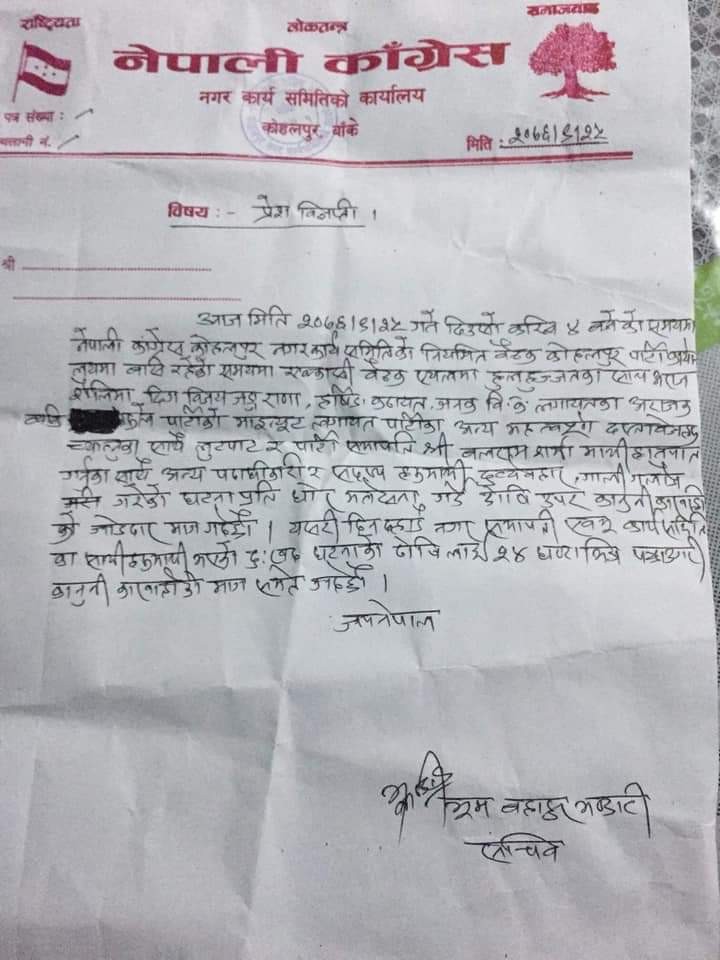 राष्ट्रियता लोकतन्त्र समाजवाद
नेपाली काँग्रेस
नगर कार्य समितिको कार्यालय
पत्र संख्या :
चलानी नं.
कोहलपुर, बाँके
मिति : २०७६।९।२५
विषय :- प्रेश विज्ञप्ती ।
श्री
आज मिति २०७६।९।२५ गते दिउसो करिव ४ बजेको समयमा
नेपाली काँग्रेस कोहलपुर नगरकार्य समितिको नियमित बैठक कोहलपुर पार्टी कार्या
लयमा बसि रहेको समयमा एक्कासी बैठक स्थलमा हुलहुज्जतका साथ
शैलिमा दिग विजय जङ्ग राणा, हर्षित कठायत, जनक वि.क. लगायतका अराजक
पार्टीको माइन्यूट लगायत पार्टीका अन्य महत्वपूर्ण दस्तावेजहरु
च्यात्नुका साथै लुटपाट र पार्टी सभापति श्री बलराम शर्मा माथी हातपात
गर्नुका साथै अन्य पदाधीकारी र सदस्य हरुमाथी दुर्व्यवहार, गाली गलौज
गरेको घटना प्रति घोर भर्त्सना गर्दै दोषि उपर कानुनी कारवाही
को जोडदार माग गर्दछौ । यसरी दिन दहाडै नगर सभापती एवम् कार्य समिति
का साथीहरुमाथी भएको दुःखद घटनाको दोषि लाई २४ घण्टा भित्र पक्राउ गरी
कानुनी कारवाहीको माग समेत गर्दछौ ।
जयनेपाल
भिम बहादुर भण्डारी
सचिव